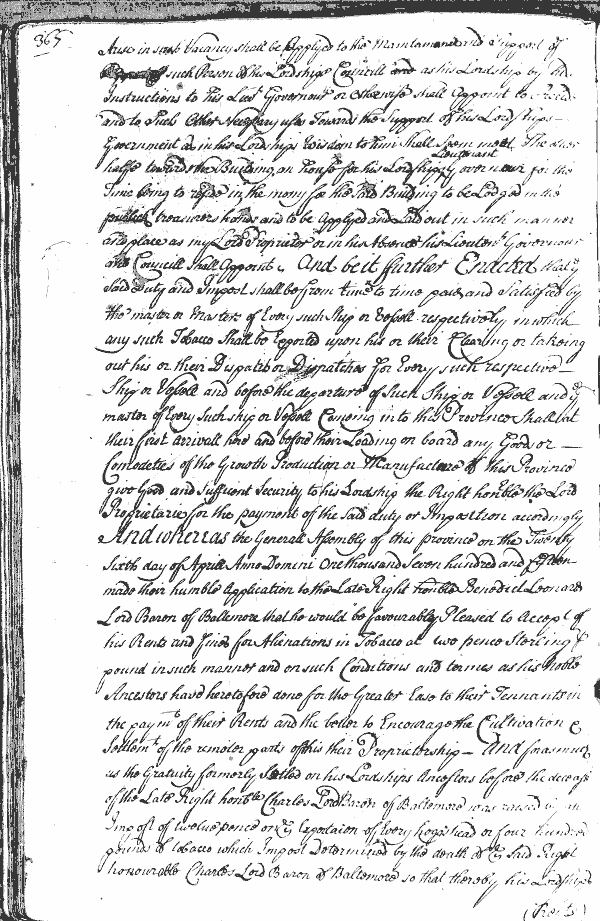 365
Arise in such Vacancy shall be Applyed to the Maintamance and Support of
such Person of his Lordships Councill and as his Lordship by the
Instructions to his Lieut Governour or otherwise shall Appoint to
and to Such Other Necessary uses Towards the Support of his Lordships —
Government as in his Lordships Wisdom to him Shall Seem meet. The other
Lieutenant
halfe towards the Building an house for his Lordships Governour for the
Time being to reside in the mony for the said Building to be Lodged in the
publick treasurers hands and to be Applyed and Laid out in such manner
and place as my Lord Proprietor or in his Absence his Lieutent Governour
and Councill Shall Appoint. And be it ffurther Enacted that ye
Said Duty and Impost shall be from time to time paid and Satisfied by
the master or Masters of Every such Ship or Vessell respectively in which
any such Tobacco Shall be Exported upon his or their Clearing or takeing
out his or their Dispatch or Dispatches for Every such respective —
Ship or Vessell and before the departure of Such Ship or Vessell and ye
master of Every such ship or Vessell Comeing in to this Province Shall at
their first Arrivall here and before their Loading on board any Goods or —
Comodeties of the Growth Production or Manufacture of this Province
give Good and Suffitient Security to his Lordship the Right honble the Lord
Proprietarie for the payment of the Said duty or Imposition accordingly
And whereas the Generall Assembly of this province on the Twenty
Sixth day of Aprill Anno Domini One thousand Seven hundred and fifteen
made their humble Application to the Late Right honble Benedict Leonard
Lord Baron of Baltemore that he would be favourably Pleased to Accept of
his Rents and fines for Alienations in Tobacco at two pence Sterling P
pound in such manner and on such Conditions and termes as his Noble
Ancestors have heretofore done for the Greater Ease to their Tennants in
the paymt of their Rents and the better to Encourage the Cultivation &
Settlemt of the remoter parts of this their Proprietorship — And forasmuch
as the Gratuity formerly Setled on his Lordships Ancestors before the decease
of the Late Right honble Charles Lord Baron of Baltemore was raised by an
Impost of twelve pence on ye Exportaion of Every hogshead or four hundred
pounds of tobacco which Impost Determined by the death of ye said Right
honourable Charles Lord Baron of Baltemore so that thereby his Lordships
(Rents)